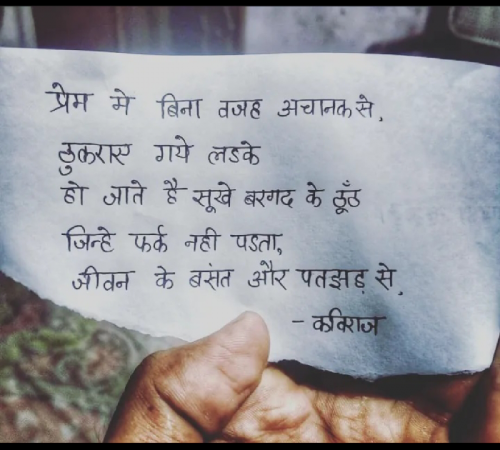 प्रेम मे बिना वजह अचानक से,
ठुकराए गये लडके
हो जाते है सूखे बरगद के ठूँठ
जिन्हे फर्क नही पडता,
जीवन के बसंत और पतझड़ से,
- कविराज